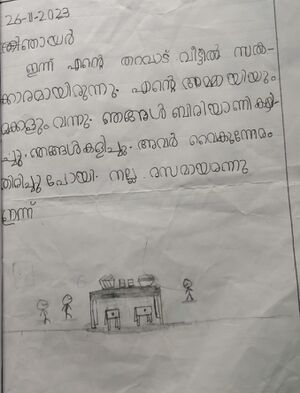 26-11-2023
ഞിഞായർ
ഇന്ന് എന്റെ തറവാട് വീട്ടിൽ സൽ-
ക്കാരമായിരുന്നു. എന്റെ അമ്മായിയും
മക്കളും വന്നു. ഞങ്ങൾ ബിരിയാണി കയി-
ച്ചു. ഞങ്ങൾകളിച്ചു. അവർ വൈകുന്നേരം
തിരിച്ചു പോയി. നല്ല രസമായരുന്നു
ഇന്ന്